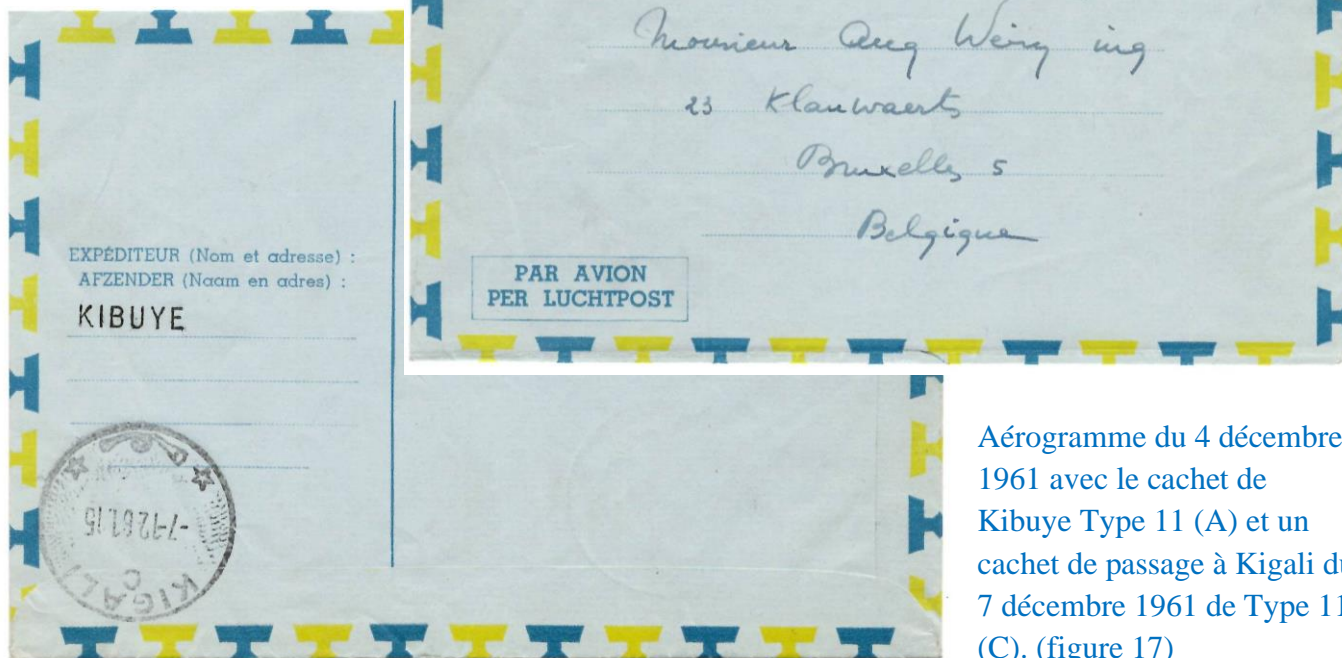 Monsieur Aug Wéry ing
23 Klauwaerts
Bruxelles 5
Belgique
PAR AVION
PER LUCHTPOST
EXPÉDITEUR (Nom et adresse) :
AFZENDER (Naam en adres) :
KIBUYE
-7-12 61.15
C
KIGALI
Aérogramme du 4 décembre
1961 avec le cachet de
Kibuye Type 11 (A) et un
cachet de passage à Kigali du
7 décembre 1961 de Type 11
(C). (figure 17)